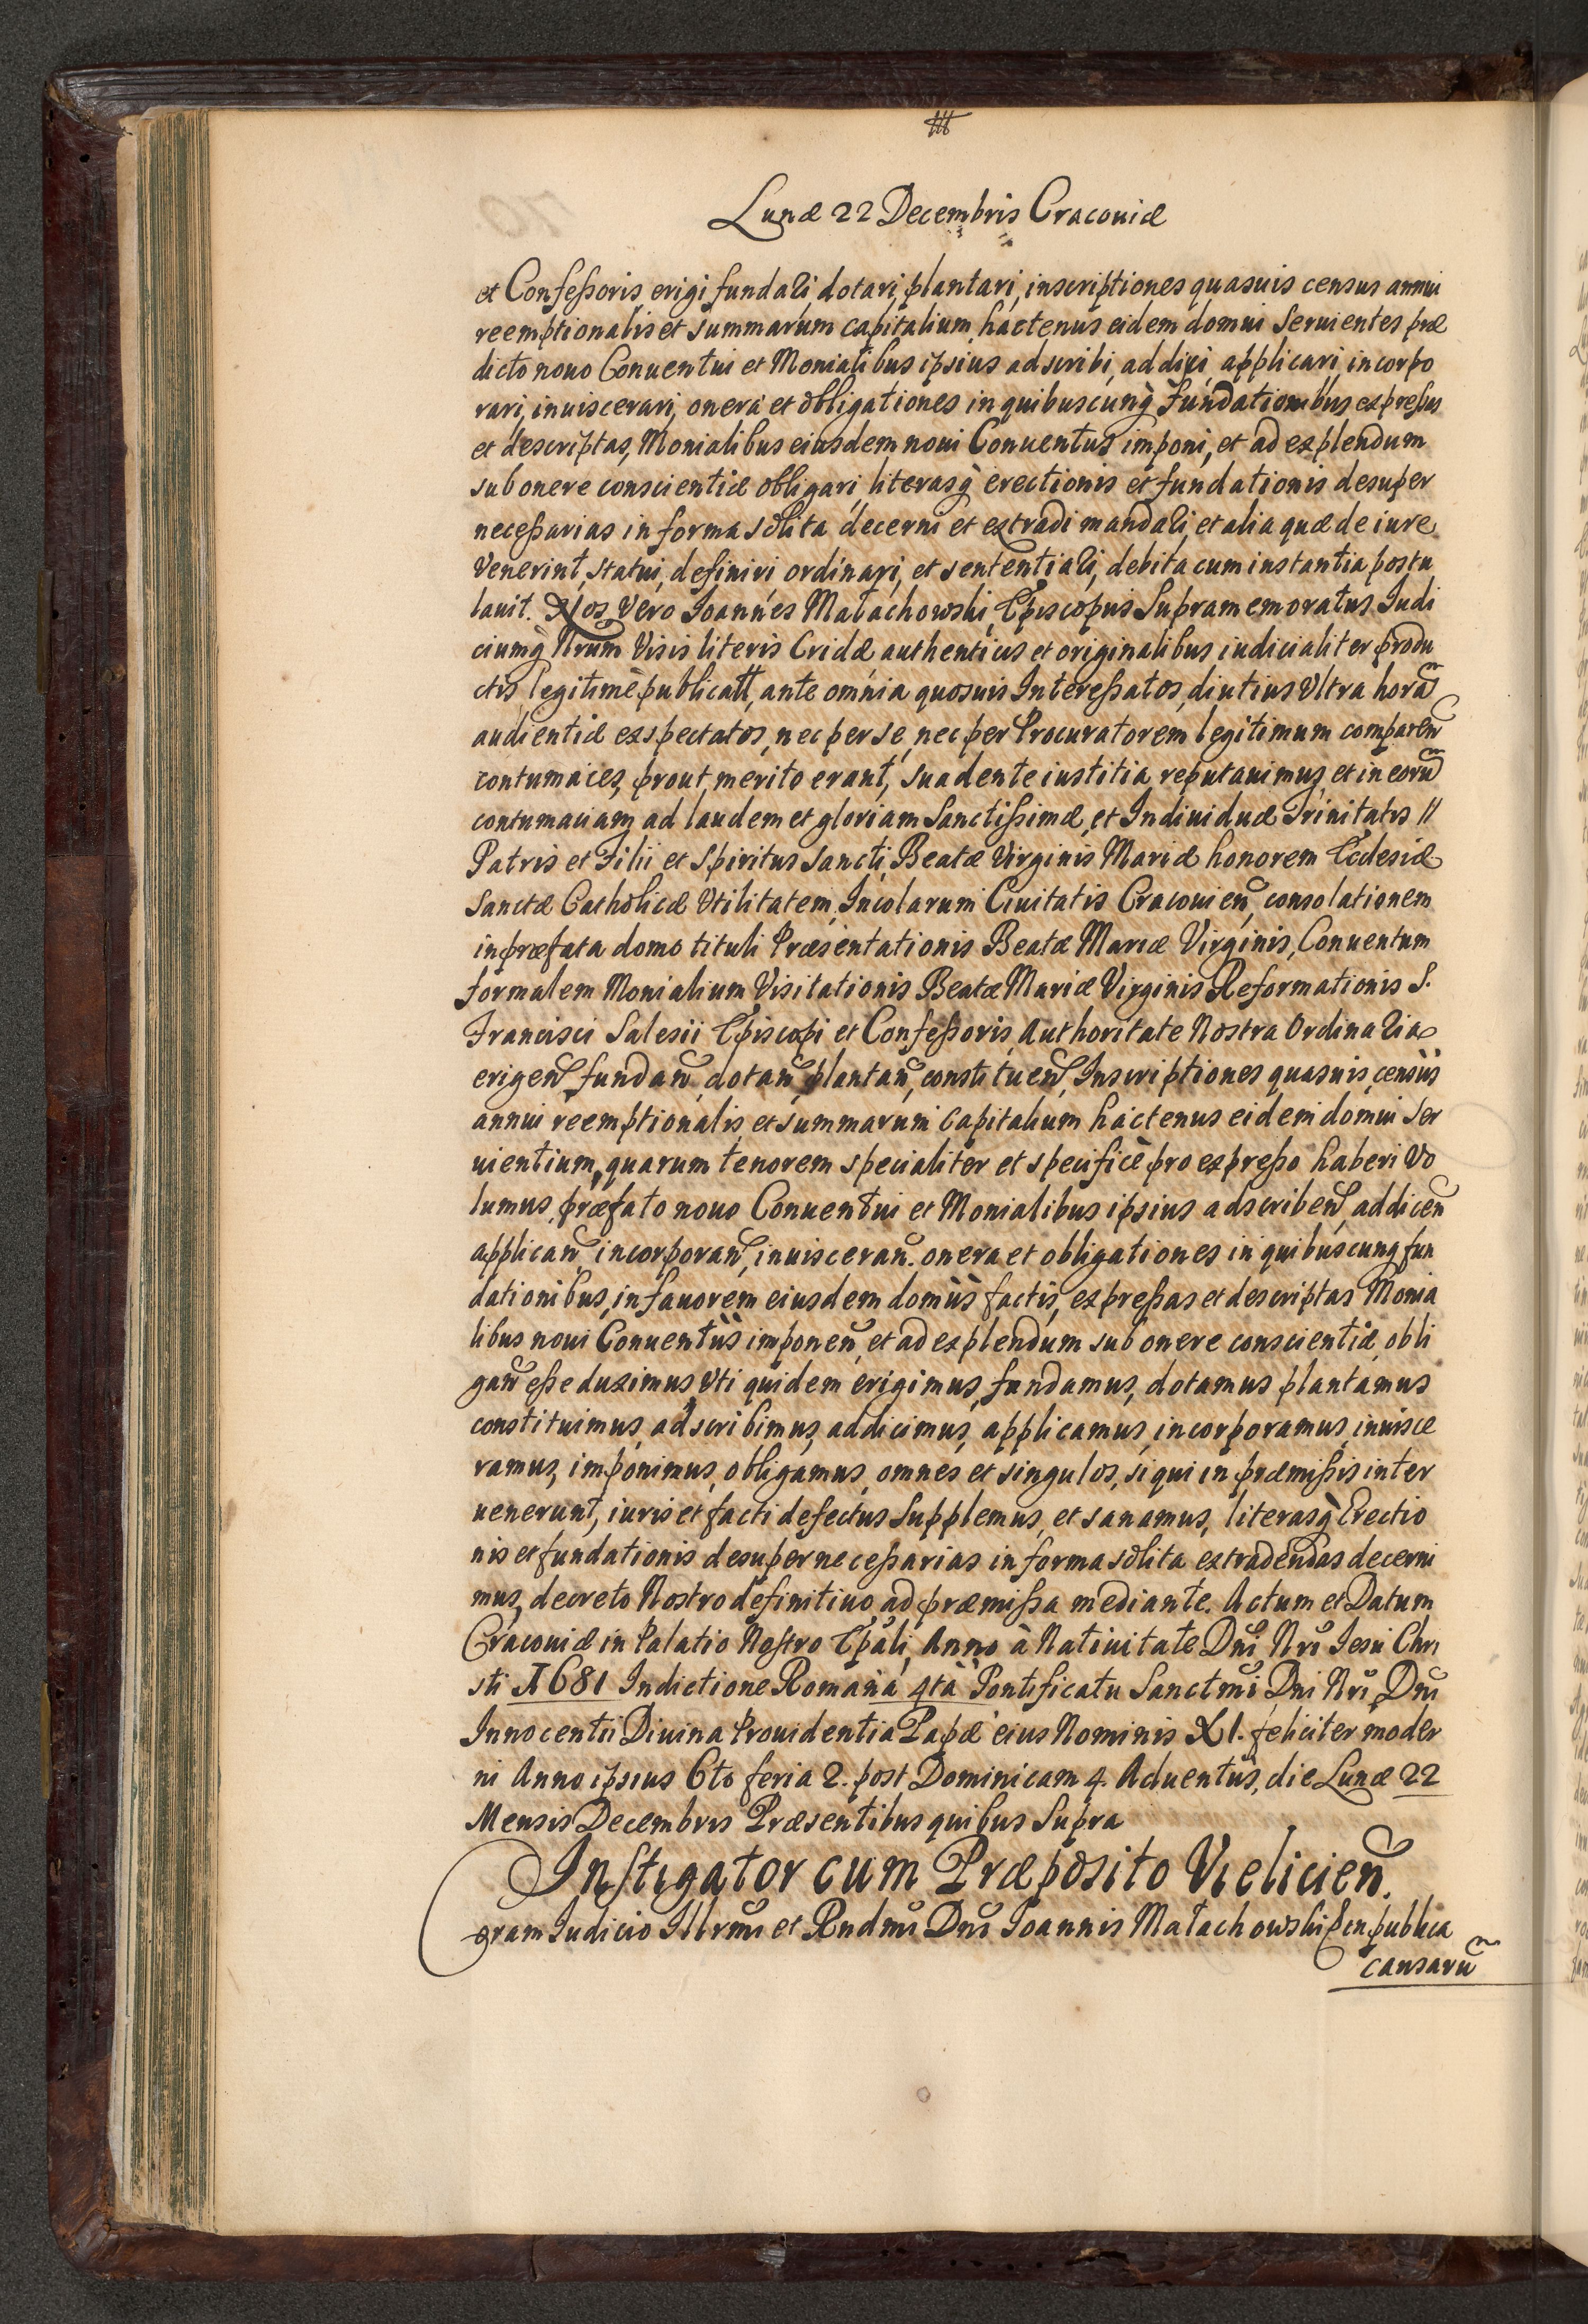 Lunæ 22 Decembris Cracouiæ
et Confeßoris erigi fundari, dotari, plantari, inscriptiones quasuis census annui
reemptionalis et summarum capitalium hactenus eidem domui seruientes præ
dicto nouo Conuentui et Monialibus ipsius adscribi, addici, applicari, incorpo
rari, inuiscerari, onera et obligationes in quibuscunq̀ fundationibus expreßas
et descriptas, Monialibus eiusdem noui Conuentus imponi, et ad explendum
sub onere conscientiæ obligari, literasq̀ erectionis et fundationis desuper
neceßarias in forma solita decerni et extradi mandari, et alia quæ de iure
Venerint, statui, definiri ordinari, et sententiari, debita cum instantia postu
lauit. Nos Vero Ioannes Małachowski, Episcopus Supramemoratus Iudi
ciumq̀ Nrum Visis literis Cridæ authenticis et originalibus iudicialiter produ
ctis, legitimè publicatt, ante omnia quosuis Intereßatos, diutius Vltra horã
audientiæ exspectatos, nec per se, nec per Procuratorem legitimum comparen̄
contumaces, prout merito erant, suadente iustitia reputauimus, et in eorũ
contumaciam, ad laudem et gloriam Sanctißimæ, et Indiuiduæ Trinitatis //
Patris et Filii et Spiritus Sancti, Beatæ Virginis Mariæ honorem Ecclesiæ
Sanctæ Catholicæ Vtilitatem, Incolarum Ciuitatis Cracouien̄, consolationem
in præfata domo tituli Præsentationis Beatæ Mariæ Virginis, Conuentum
formalem Monialium Visitationis Beatæ Mariæ Virginis Reformationis S.
Francisci Salesii Episcopi et Confeßoris, Authoritate Nostra Ordinaria
erigen̄, fundan̄, dotan̄, plantan̄, constituen̄, Inscriptiones quasuis, censûs
annui reemptionalis, et summarum capitalium hactenus eidem domui ser
uientium, quarum tenorem specialiter et specificè pro expreßo haberi Vo
lumus, præfato nouo Conuentui et Monialibus ipsius adscriben̄, addicen̄
applican̄, incorporan̄, inuisceran̄. onera et obligationes in quibuscunq̀ fun
dationibus, in fauorem eiusdem domûs factis, expreßas et descriptas Monia
libus noui Conuentûs imponen̄, et ad explendum sub onere conscientiæ, obli
gan̄ eße duximus, Vti quidem erigimus, fundamus, dotamus plantamus
constituimus, adscribimus, addicimus, applicamus, incorporamus, inuisce
ramus, imponimus, obligamus, omnes et singulos, si qui in præmißis inter
uenerunt, iuris et facti defectus Supplemus, et sanamus, literasq̀ Erectio
nis et fundationis desuper neceßarias in forma solita extradendas decerni
mus, decreto Nostro definitiuo, ad præmißa mediante. Actum et Datum
Cracouiæ in Palatio Nostro Ep̄ali, Anno à Natiuitate Dn̄i Nr̄i Iesu Chri
sti 1681 Indictione Romana 4ta Pontificatu Sanctmi Dni Nri Dni
Innocentii Diuina Prouidentia Papæ eius Nominis XI. feliciter moder
ni Anno ipsius 6to feria 2. post Dominicam 4. Aduentûs, die Lunæ 22
Mensis Decembris Præsentibus quibus Supra
Instigator cum Præposito Vielicien̄.
Coram Iudicio Illrmi et Rndmi Dni Ioannis Małachowski Ep̄i in publica
causarũ